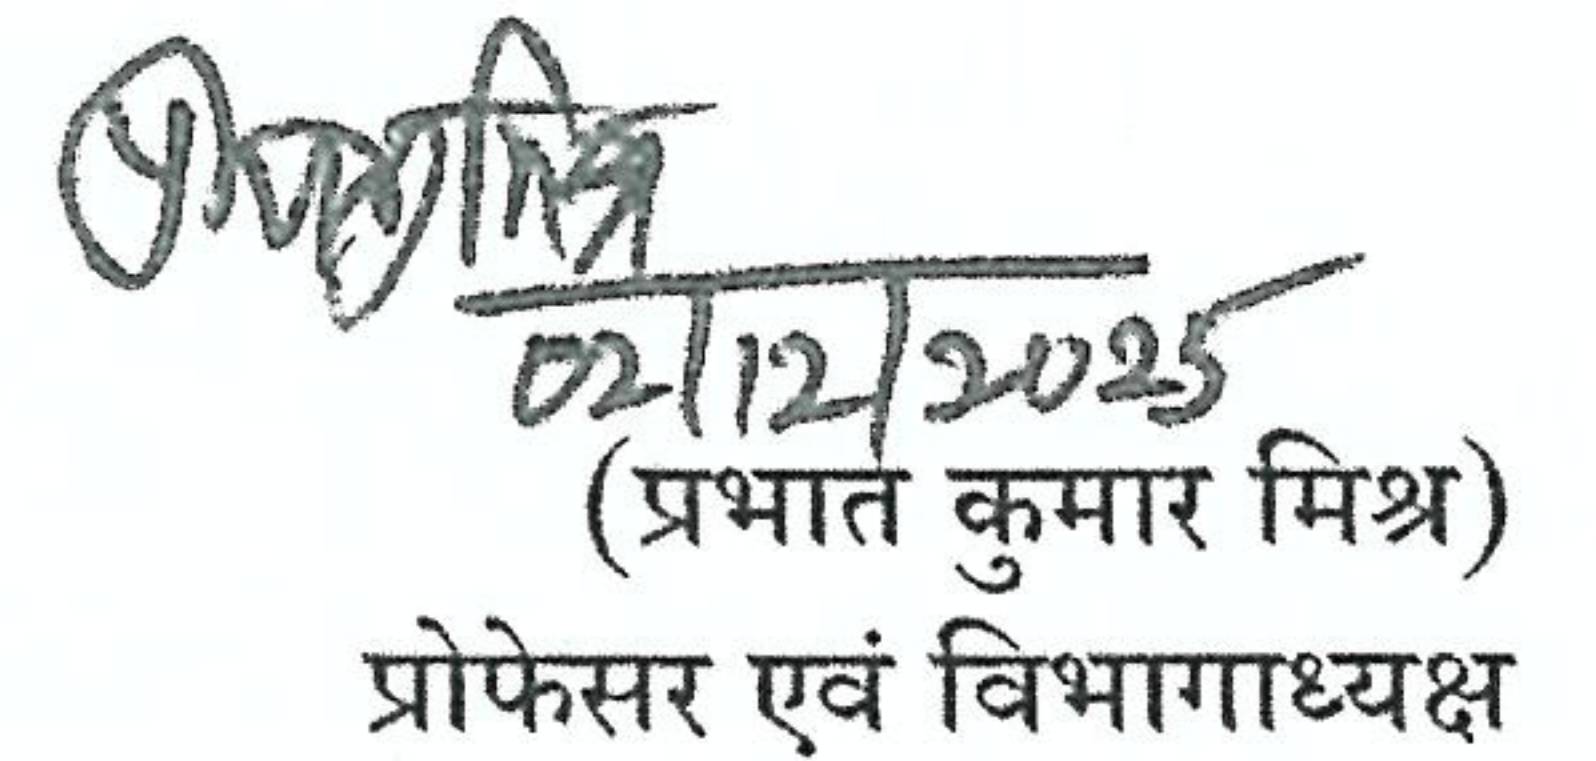 02/12/2025
(प्रभात कुमार मिश्र)
प्रोफेसर एवं विभागाध्यक्ष